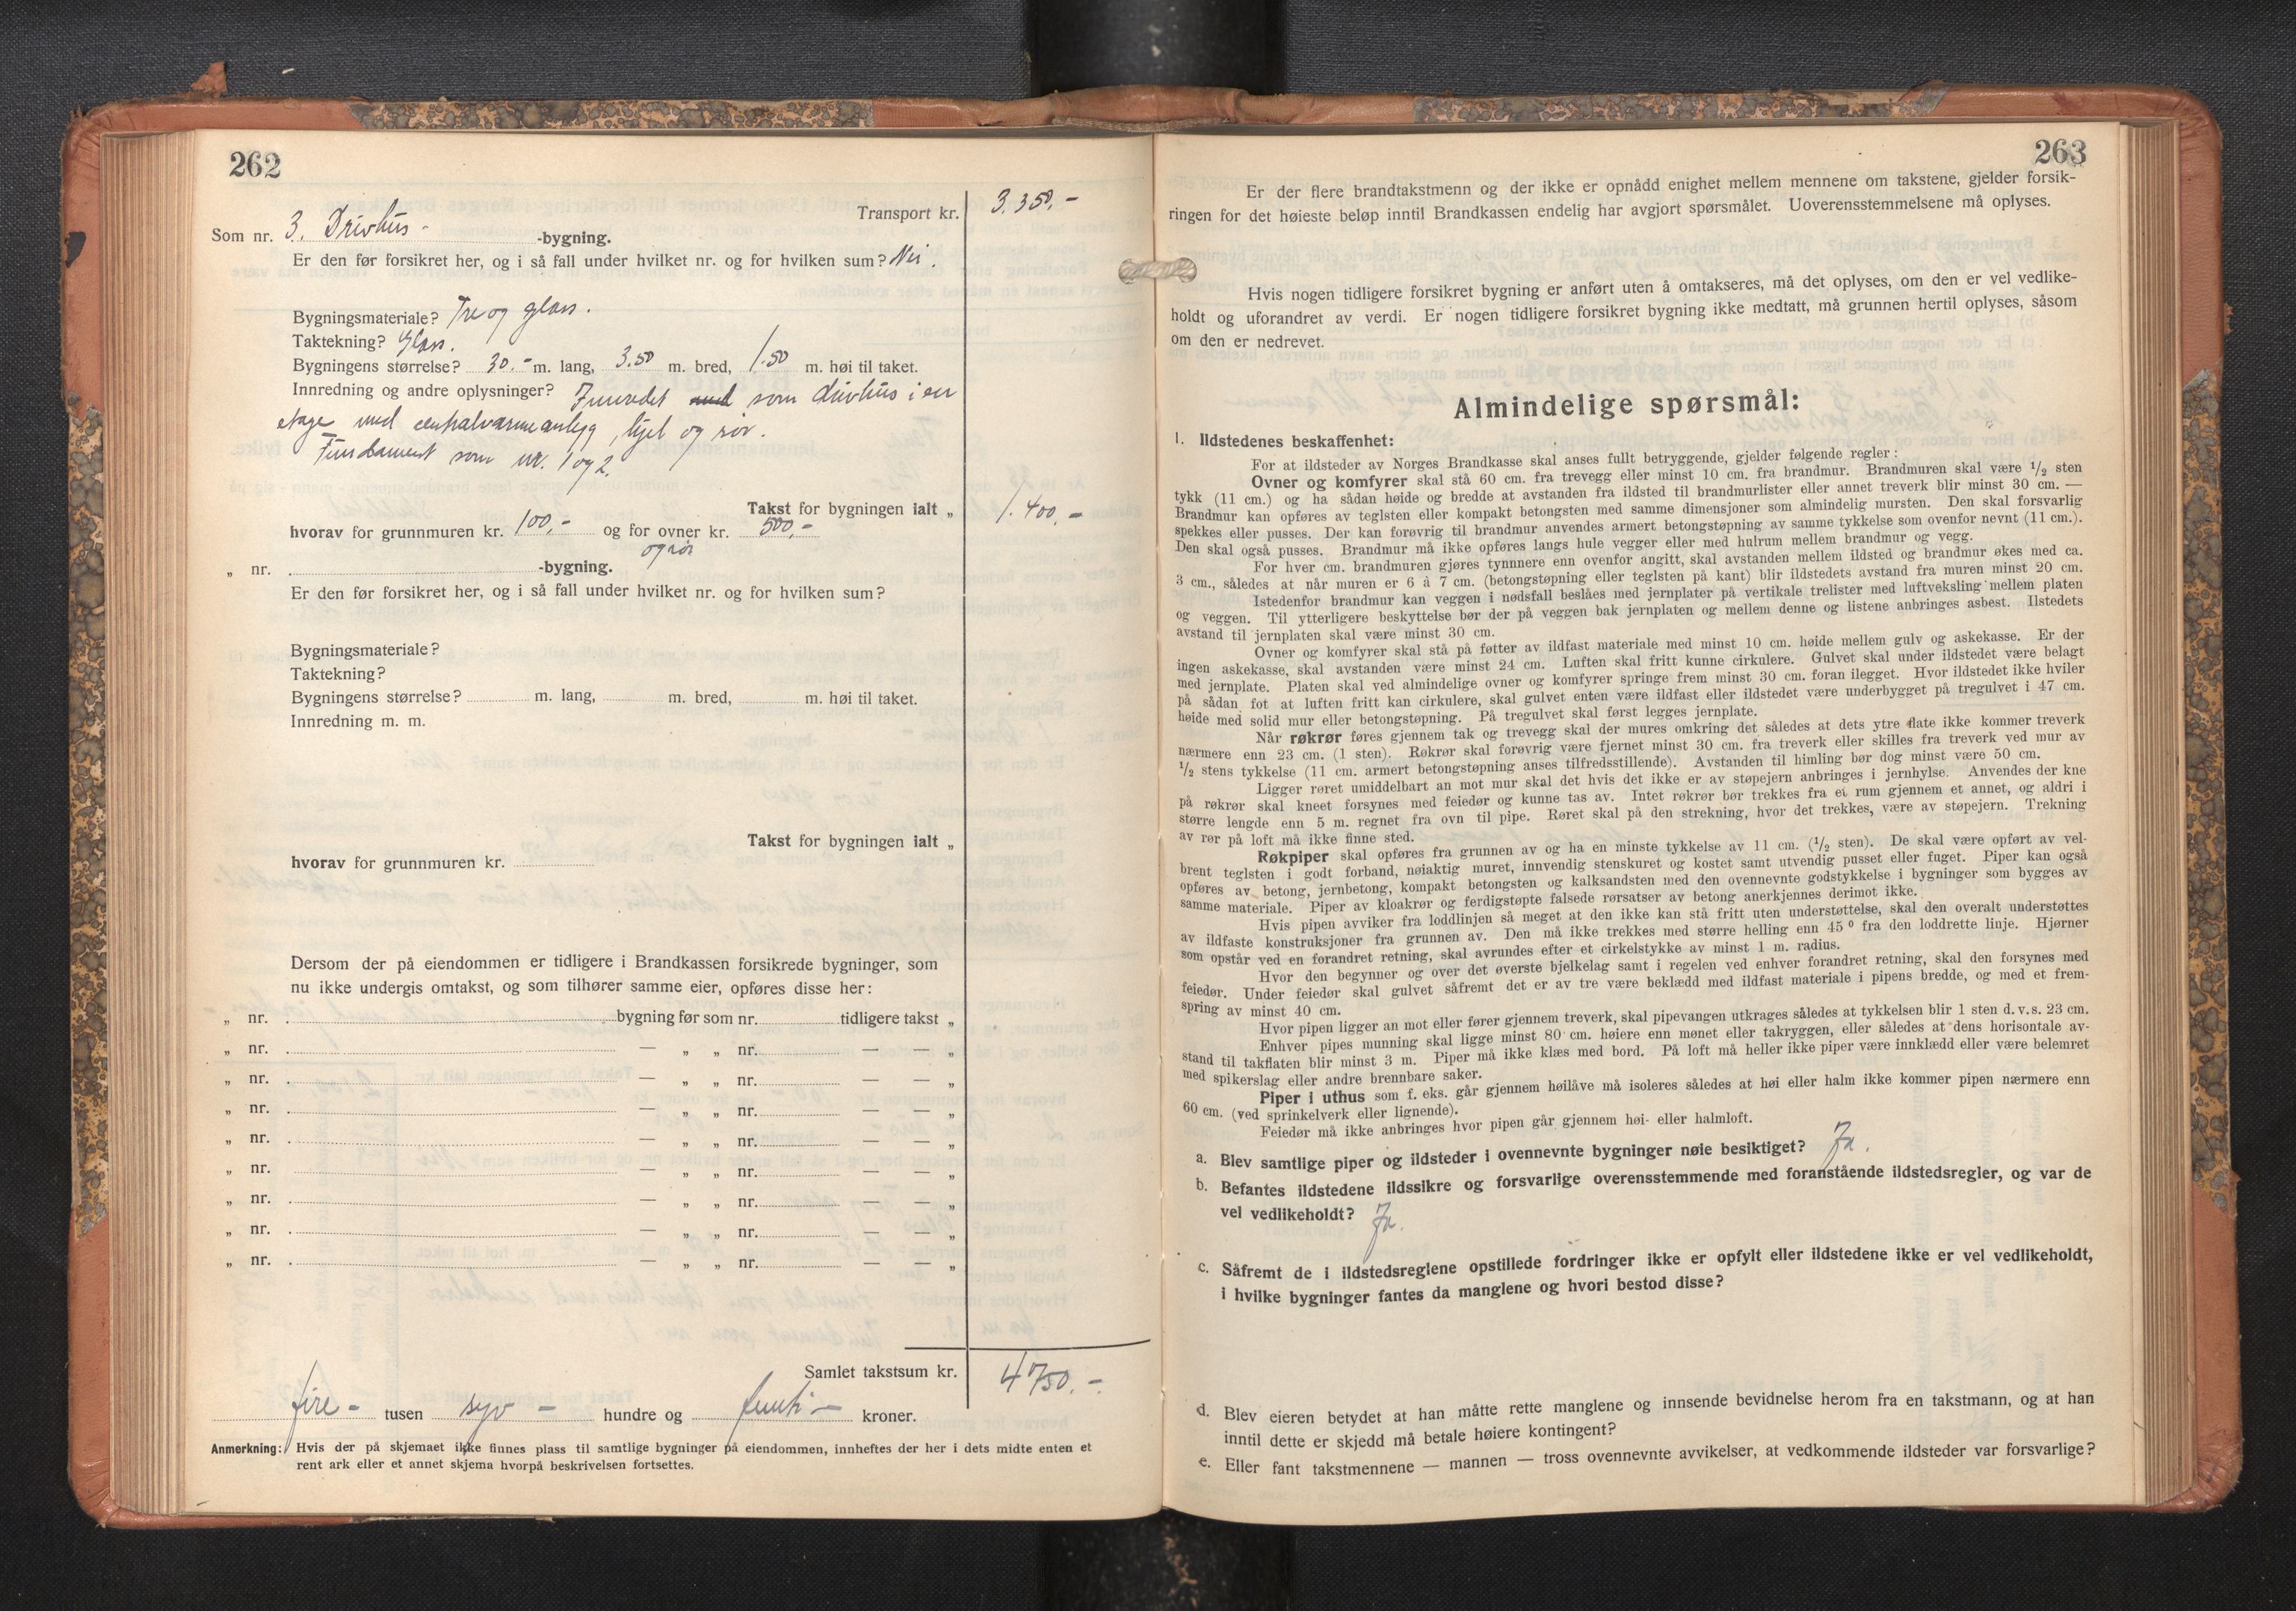 262
Transport kr. 3.350,-
Som nr. 3. Drivhus - -bygning.
Er den før forsikret her, og i så fall under hvilket nr. og for hvilken sum? Nei.
Bygningsmateriale? Tre og glass.
Taktekning? Glass.
Bygningens størrelse? 30.- m. lang, 3.50 m. bred, 1.50 m. høi til taket.
Innredning og andre oplysninger? Innredet med som drivhus i en
etage med centralvarmeanlegg, kjel og rør.
Fundament som nr. 1 og 2.
Takst for bygningen ialt „ 1.400,-
hvorav for grunnmuren kr. 100,- og for ovner kr. 500,-
og rør
„ nr. -bygning.
Er den før forsikret her, og i så fall under hvilket nr. og for hvilken sum?
Bygningsmateriale?
Taktekning?
Bygningens størrelse? m. lang, m. bred, m. høi til taket.
Innredning m. m.
Takst for bygningen ialt „
hvorav for grunnmuren kr.
Dersom der på eiendommen er tidligere i Brandkassen forsikrede bygninger, som
nu ikke undergis omtakst, og som tilhører samme eier, opføres disse her:
„ nr. bygning før som nr. tidligere takst „
„ nr. — „ „ nr. — — „
„ nr. — „ „ nr. — — „
„ nr. — „ „ nr. — — „
„ nr. — „ „ nr. — — „
„ nr. — „ „ nr. — — „
„ nr. — „ „ nr. — — „
„ nr. — „ „ nr. — — „
„ nr. — „ „ nr. — — „
Samlet takstsum kr. 4750.-
fire - tusen syv - hundre og femti - kroner.
Anmerkning: Hvis der på skjemaet ikke finnes plass til samtlige bygninger på eiendommen, innheftes der her i dets midte enten et
rent ark eller et annet skjema hvorpå beskrivelsen fortsettes.
263
Er der flere brandtakstmenn og der ikke er opnådd enighet mellem mennene om takstene, gjelder forsik-
ringen for det høieste beløp inntil Brandkassen endelig har avgjort spørsmålet. Uoverensstemmelsene må oplyses.
Hvis nogen tidligere forsikret bygning er anført uten å omtakseres, må det oplyses, om den er vel vedlike-
holdt og uforandret av verdi. Er nogen tidligere forsikret bygning ikke medtatt, må grunnen hertil oplyses, såsom
om den er nedrevet.
Almindelige spørsmål:
1. Ildstedenes beskaffenhet:
For at ildsteder av Norges Brandkasse skal anses fullt betryggende, gjelder følgende regler:
Ovner og komfyrer skal stå 60 cm. fra trevegg eller minst 10 cm. fra brandmur. Brandmuren skal være 1/2 sten
tykk (11 cm.) og ha sådan høide og bredde at avstanden fra ildsted til brandmurlister eller annet treverk blir minst 30 cm. —
Brandmur kan opføres av teglsten eller kompakt betongsten med samme dimensjoner som almindelig mursten. Den skal forsvarlig
spekkes eller pusses. Der kan forøvrig til brandmur anvendes armert betongstøpning av samme tykkelse som ovenfor nevnt (11 cm.).
Den skal også pusses. Brandmur må ikke opføres langs hule vegger eller med hulrum mellem brandmur og vegg.
For hver cm. brandmuren gjøres tynnnere enn ovenfor angitt, skal avstanden mellem ildsted og brandmur økes med ca.
3 cm., således at når muren er 6 à 7 cm. (betongstøpning eller teglsten på kant) blir ildstedets avstand fra muren minst 20 cm.
Istedenfor brandmur kan veggen i nødsfall beslåes med jernplater på vertikale trelister med luftveksling mellem platen
og veggen. Til ytterligere beskyttelse bør der på veggen bak jernplaten og mellem denne og listene anbringes asbest. Ilstedets
avstand til jernplaten skal være minst 30 cm.
Ovner og komfyrer skal stå på føtter av ildfast materiale med minst 10 cm. høide mellem gulv og askekasse. Er der
ingen askekasse, skal avstanden være minst 24 cm. Luften skal fritt kunne cirkulere. Gulvet skal under ildstedet være belagt
med jernplate. Platen skal ved almindelige ovner og komfyrer springe frem minst 30 cm. foran ilegget. Hvor ildstedet ikke hviler
på sådan fot at luften fritt kan cirkulere, skal gulvet enten være ildfast eller ildstedet være underbygget på tregulvet i 47 cm.
høide med solid mur eller betongstøpning. På tregulvet skal først legges jernplate.
Når røkrør føres gjennem tak og trevegg skal der mures omkring det således at dets ytre flate ikke kommer treverk
nærmere enn 23 cm. (1 sten). Røkrør skal forøvrig være fjernet minst 30 cm. fra treverk eller skilles fra treverk ved mur av
1/2 stens tykkelse (11 cm. armert betongstøpning anses tilfredsstillende). Avstanden til himling bør dog minst være 50 cm.
Ligger røret umiddelbart an mot mur skal det hvis det ikke er av støpejern anbringes i jernhylse. Anvendes der kne
på røkrør skal kneet forsynes med feiedør og kunne tas av. Intet røkrør bør trekkes fra et rum gjennem et annet, og aldri i
større lengde enn 5 m. regnet fra ovn til pipe. Røret skal på den strekning, hvor det trekkes, være av støpejern. Trekning
av rør på loft må ikke finne sted.
Røkpiper skal opføres fra grunnen av og ha en minste tykkelse av 11 cm. (1/2 sten). De skal være opført av vel-
brent teglsten i godt forband, nøiaktig muret, innvendig stenskuret og kostet samt utvendig pusset eller fuget. Piper kan også
opføres av betong, jernbetong, kompakt betongsten og kalksandsten med den ovennevnte godstykkelse i bygninger som bygges av
samme materiale. Piper av kloakrør og ferdigstøpte falsede rørsatser av betong anerkjennes derimot ikke.
Hvis pipen avviker fra loddlinjen så meget at den ikke kan stå fritt uten understøttelse, skal den overalt understøttes
av ildfaste konstruksjoner fra grunnen av. Den må ikke trekkes med større helling enn 45° fra den loddrette linje. Hjørner
som opstår ved en forandret retning, skal avrundes efter et cirkelstykke av minst 1 m. radius.
Hvor den begynner og over det øverste bjelkelag samt i regelen ved enhver forandret retning, skal den forsynes med
feiedør. Under feiedør skal gulvet såfremt det er av tre være beklædd med ildfast materiale i pipens bredde, og med et frem-
spring av minst 40 cm.
Hvor pipen ligger an mot eller fører gjennem treverk, skal pipevangen utkrages således at tykkelsen blir 1 sten d.v.s. 23 cm.
Enhver pipes munning skal ligge minst 80 cm. høiere enn mønet eller takryggen, eller således at dens horisontale av-
stand til takflaten blir minst 3 m. Piper må ikke klæs med bord. På loft må heller ikke piper være innklædd eller være belemret
med spikerslag eller andre brennbare saker.
Piper i uthus som f. eks. går gjennem høilåve må isoleres således at høi eller halm ikke kommer pipen nærmere enn
60 cm. (ved sprinkelverk eller lignende).
Feiedør må ikke anbringes hvor pipen går gjennem høi- eller halmloft.
a. Blev samtlige piper og ildsteder i ovennevnte bygninger nøie besiktiget? Ja.
b. Befantes ildstedene ildssikre og forsvarlige overensstemmende med foranstående ildstedsregler, og var de
vel vedlikeholdt? Ja.
c. Såfremt de i ildstedsreglene opstillede fordringer ikke er opfylt eller ildstedene ikke er vel vedlikeholdt,
i hvilke bygninger fantes da manglene og hvori bestod disse?
d. Blev eieren betydet at han måtte rette manglene og innsende bevidnelse herom fra en takstmann, og at han
inntil dette er skjedd må betale høiere kontingent?
e. Eller fant takstmennene — mannen — tross ovennevnte avvikelser, at vedkommende ildsteder var forsvarlige?